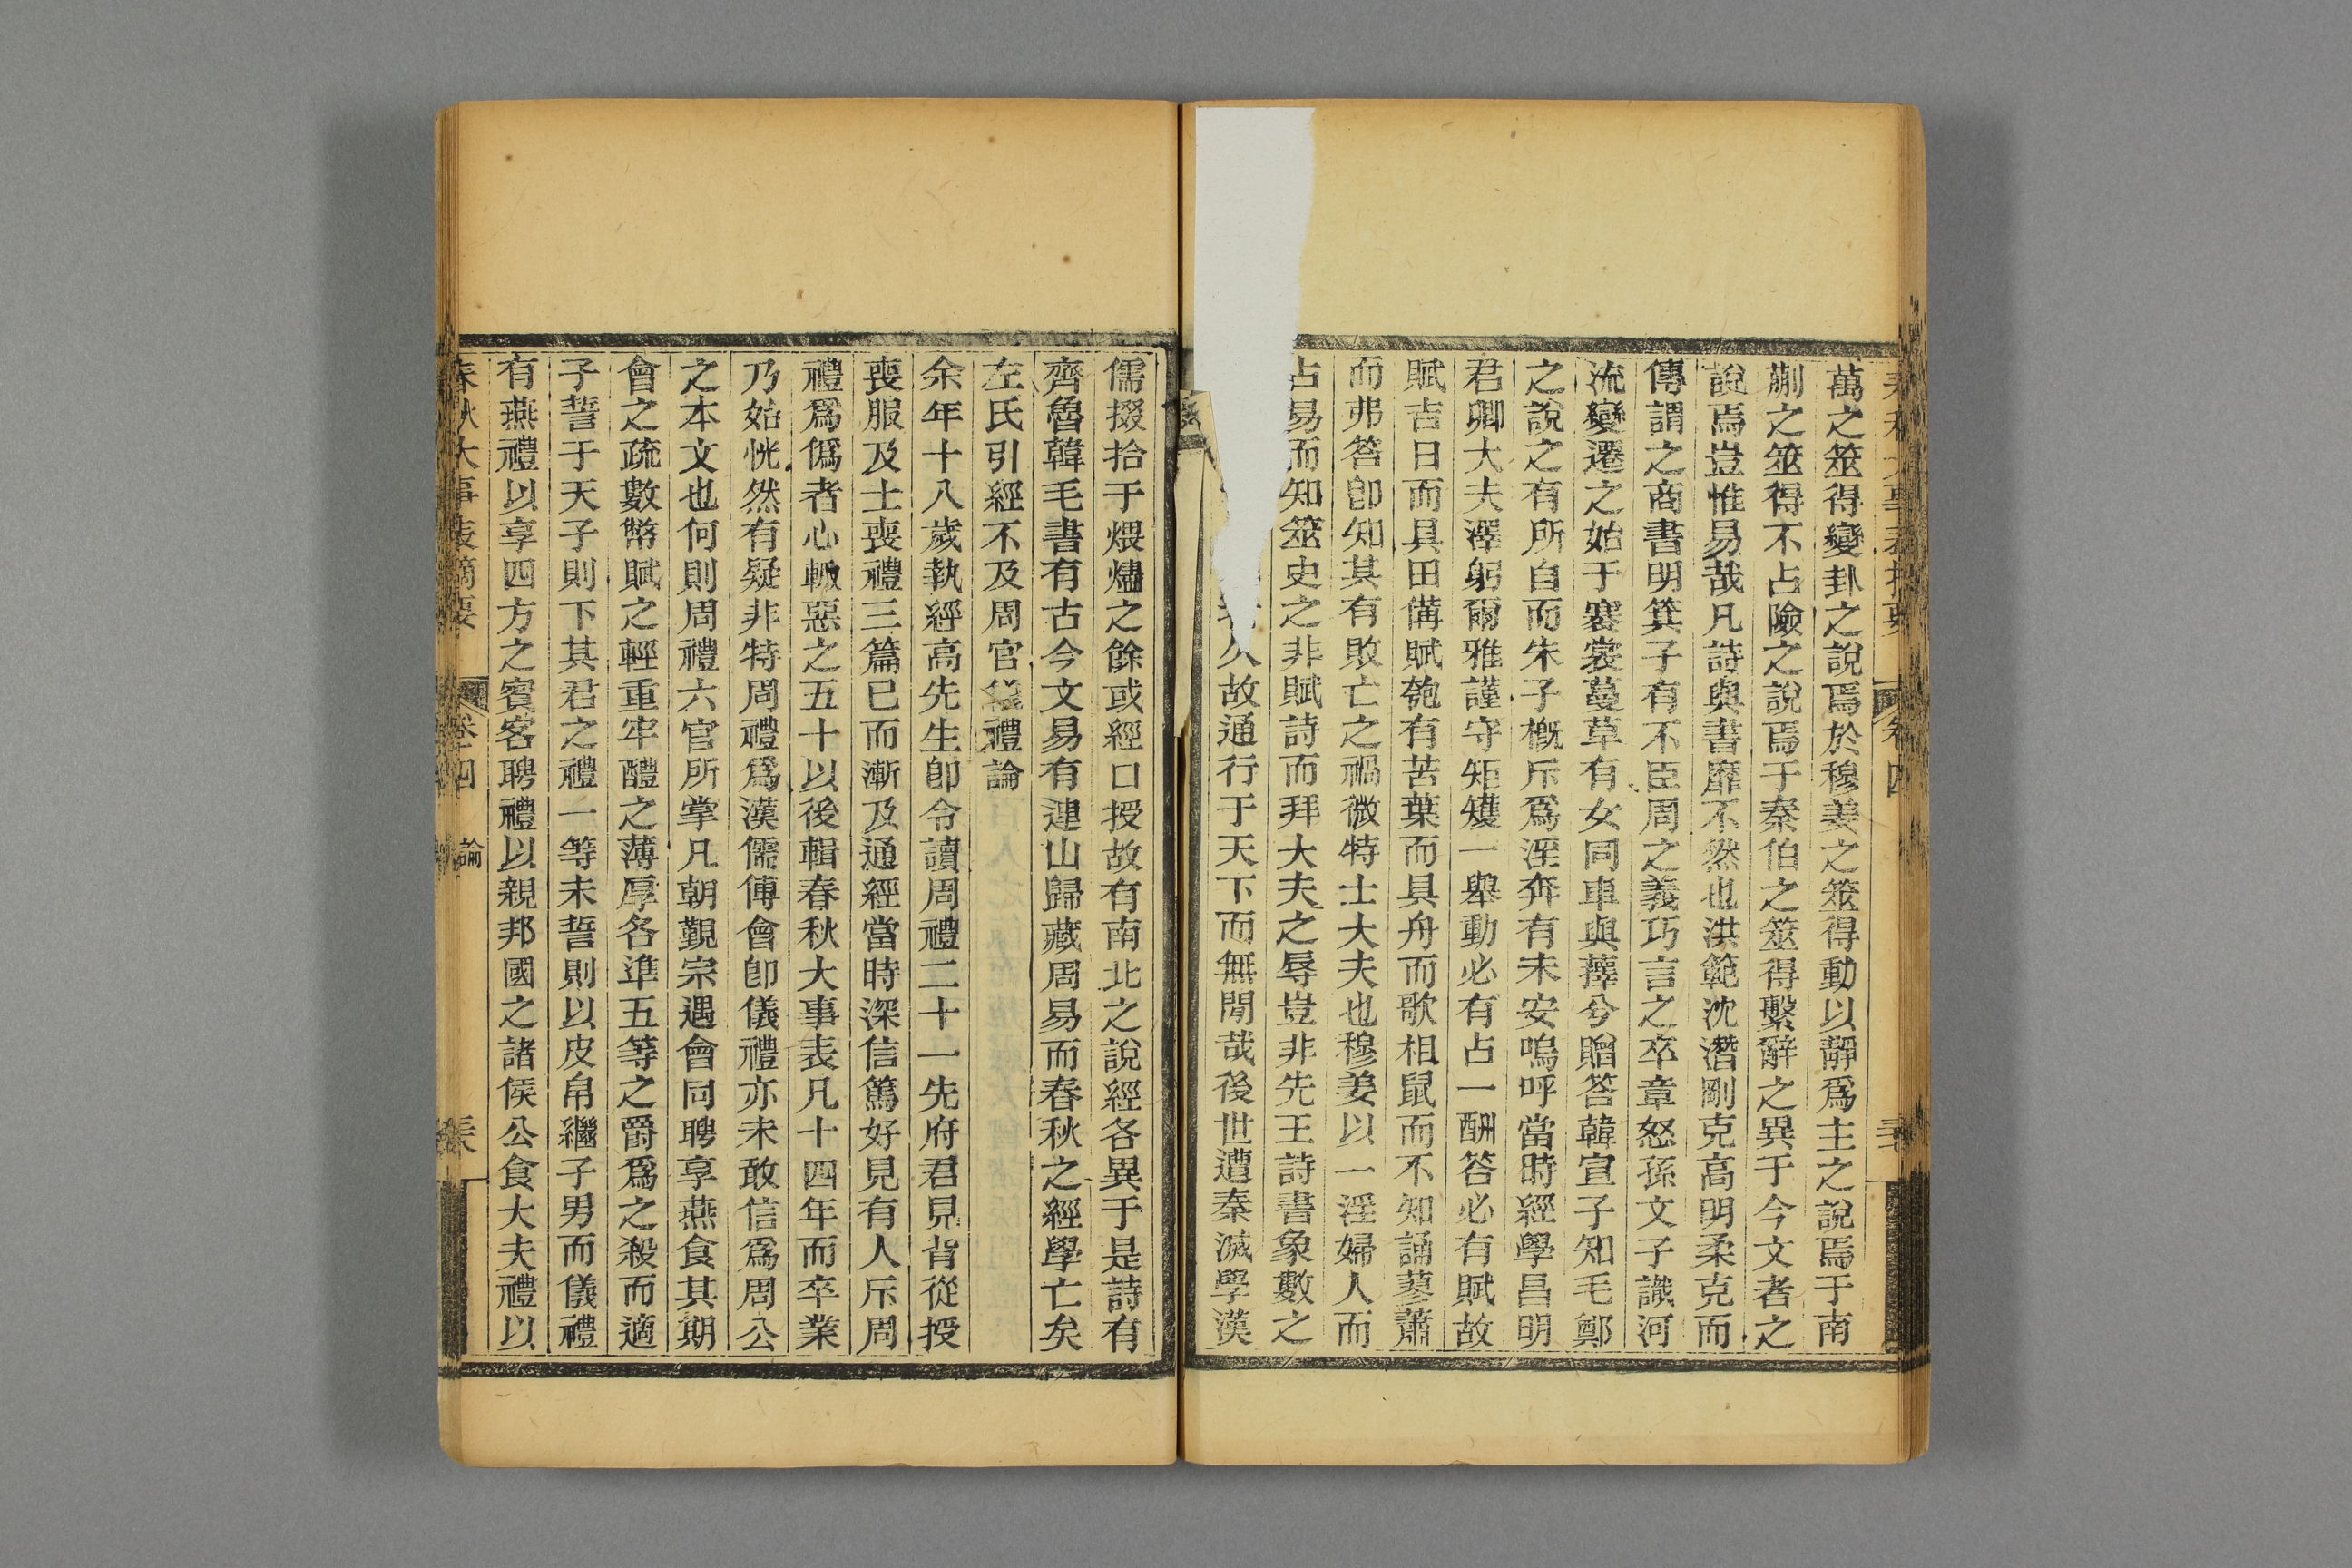 萬之筮得變卦之說焉於穆姜之筮得動以靜爲主之說焉于南
蒯之筮得不占險之說焉于秦伯之筮得繫辭之異于今文者之
說焉豈惟易哉凡詩與書靡不然也洪範沈潛剛克高明柔克而
傳謂之商書明箕子有不臣周之義巧言之卒章怒孫文子譏河
流變遷之始于褰裳蔓草有女同車與蘀兮贈答韓宣子知毛鄭
之說之有所自而朱子槪斥爲淫奔有未安嗚呼當時經學昌明
君卿大夫澤躬爾雅謹守矩矱一舉動必有占一酬答必有賦故
賦吉日而具田備賦匏有苦葉而具舟而歌相鼠而不知誦蓼蕭
而弗答卽知其有敗亡之禍微特士大夫也穆姜以一淫婦人而
占易而知筮史之非賦詩而拜大夫之辱豈非先王詩書象數之
人故通行于天下而無閒哉後世遭秦滅學漢
儒掇拾于煨燼之餘或經口授故有南北之說經各異于是詩有
齊魯韓毛書有古今文易有連山歸藏周易而春秋之經學亡矣
左氏引經不及周官儀禮論
余年十八歲執經高先生卽令讀周禮二十一先府君見背從授
喪服及士喪禮三篇已而漸及通經當時深信篤好見有人斥周
禮爲僞者心輙惡之五十以後輯春秋大事表凡十四年而卒業
乃始恍然有疑非特周禮爲漢儒傅會卽儀禮亦未敢信爲周公
之本文也何則周禮六官所掌凡朝覲宗遇會同聘享燕食其期
會之疏數幣賦之輕重牢醴之薄厚各準五等之爵爲之殺而適
子誓于天子則下其君之禮一等未誓則以皮帛繼子男而儀禮
有燕禮以享四方之賓客聘禮以親邦國之諸侯公食大夫禮以
春秋大事表摘要 卷十四 論